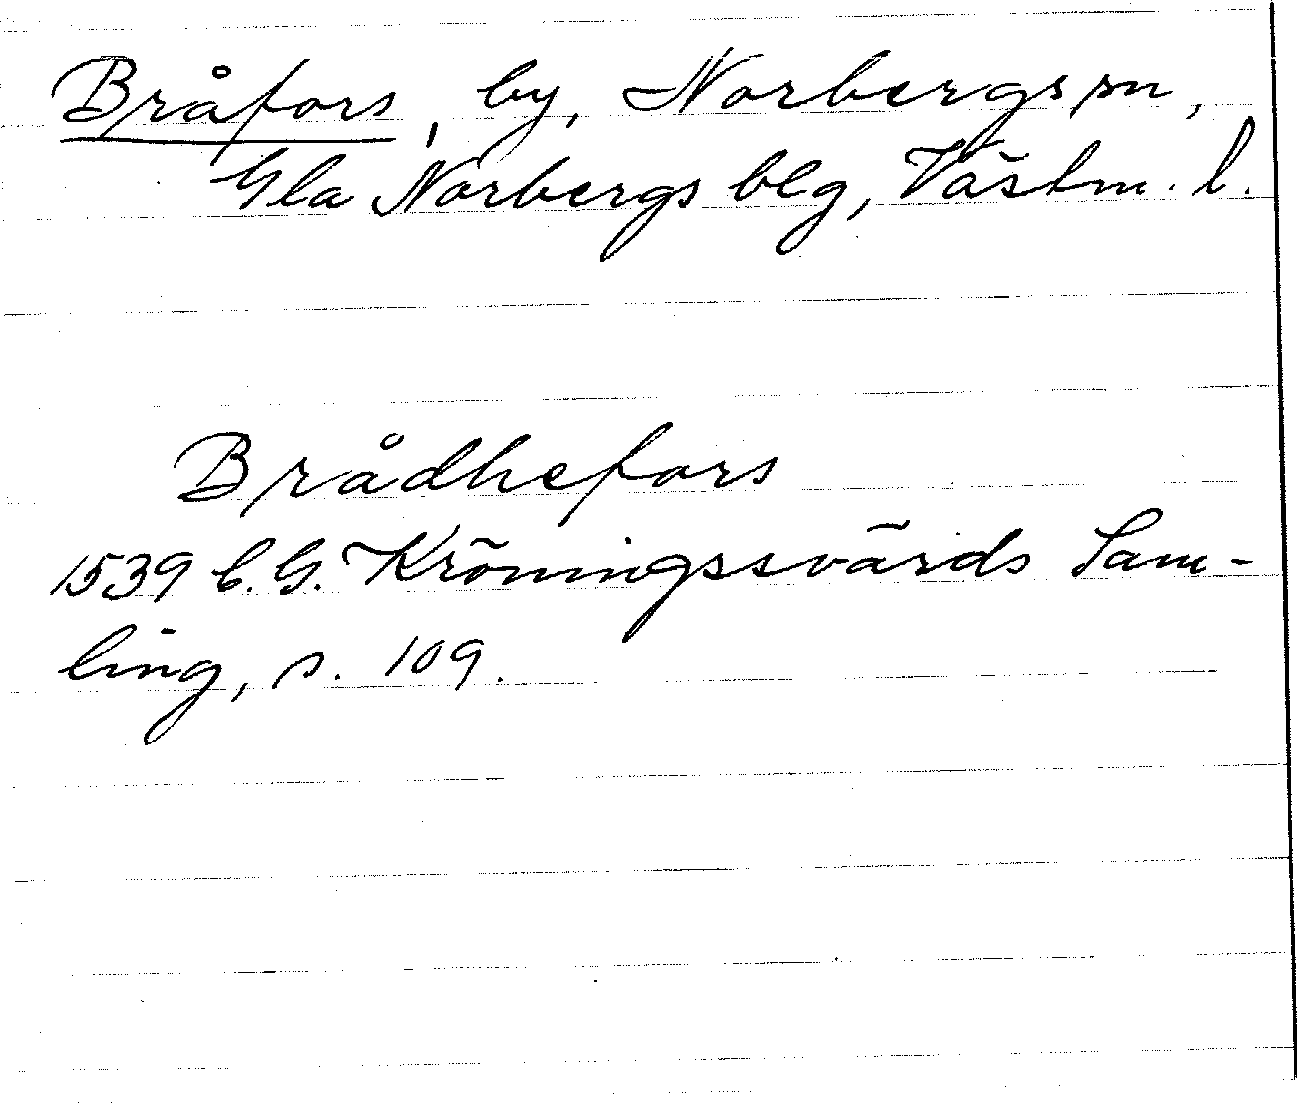 Bråfors, by, Norbergs sn,
Gla Norbergs blg, Västm. l.
Brådhefors
1539 C.G. Kröningssvärds Sam-
ling, s. 109.